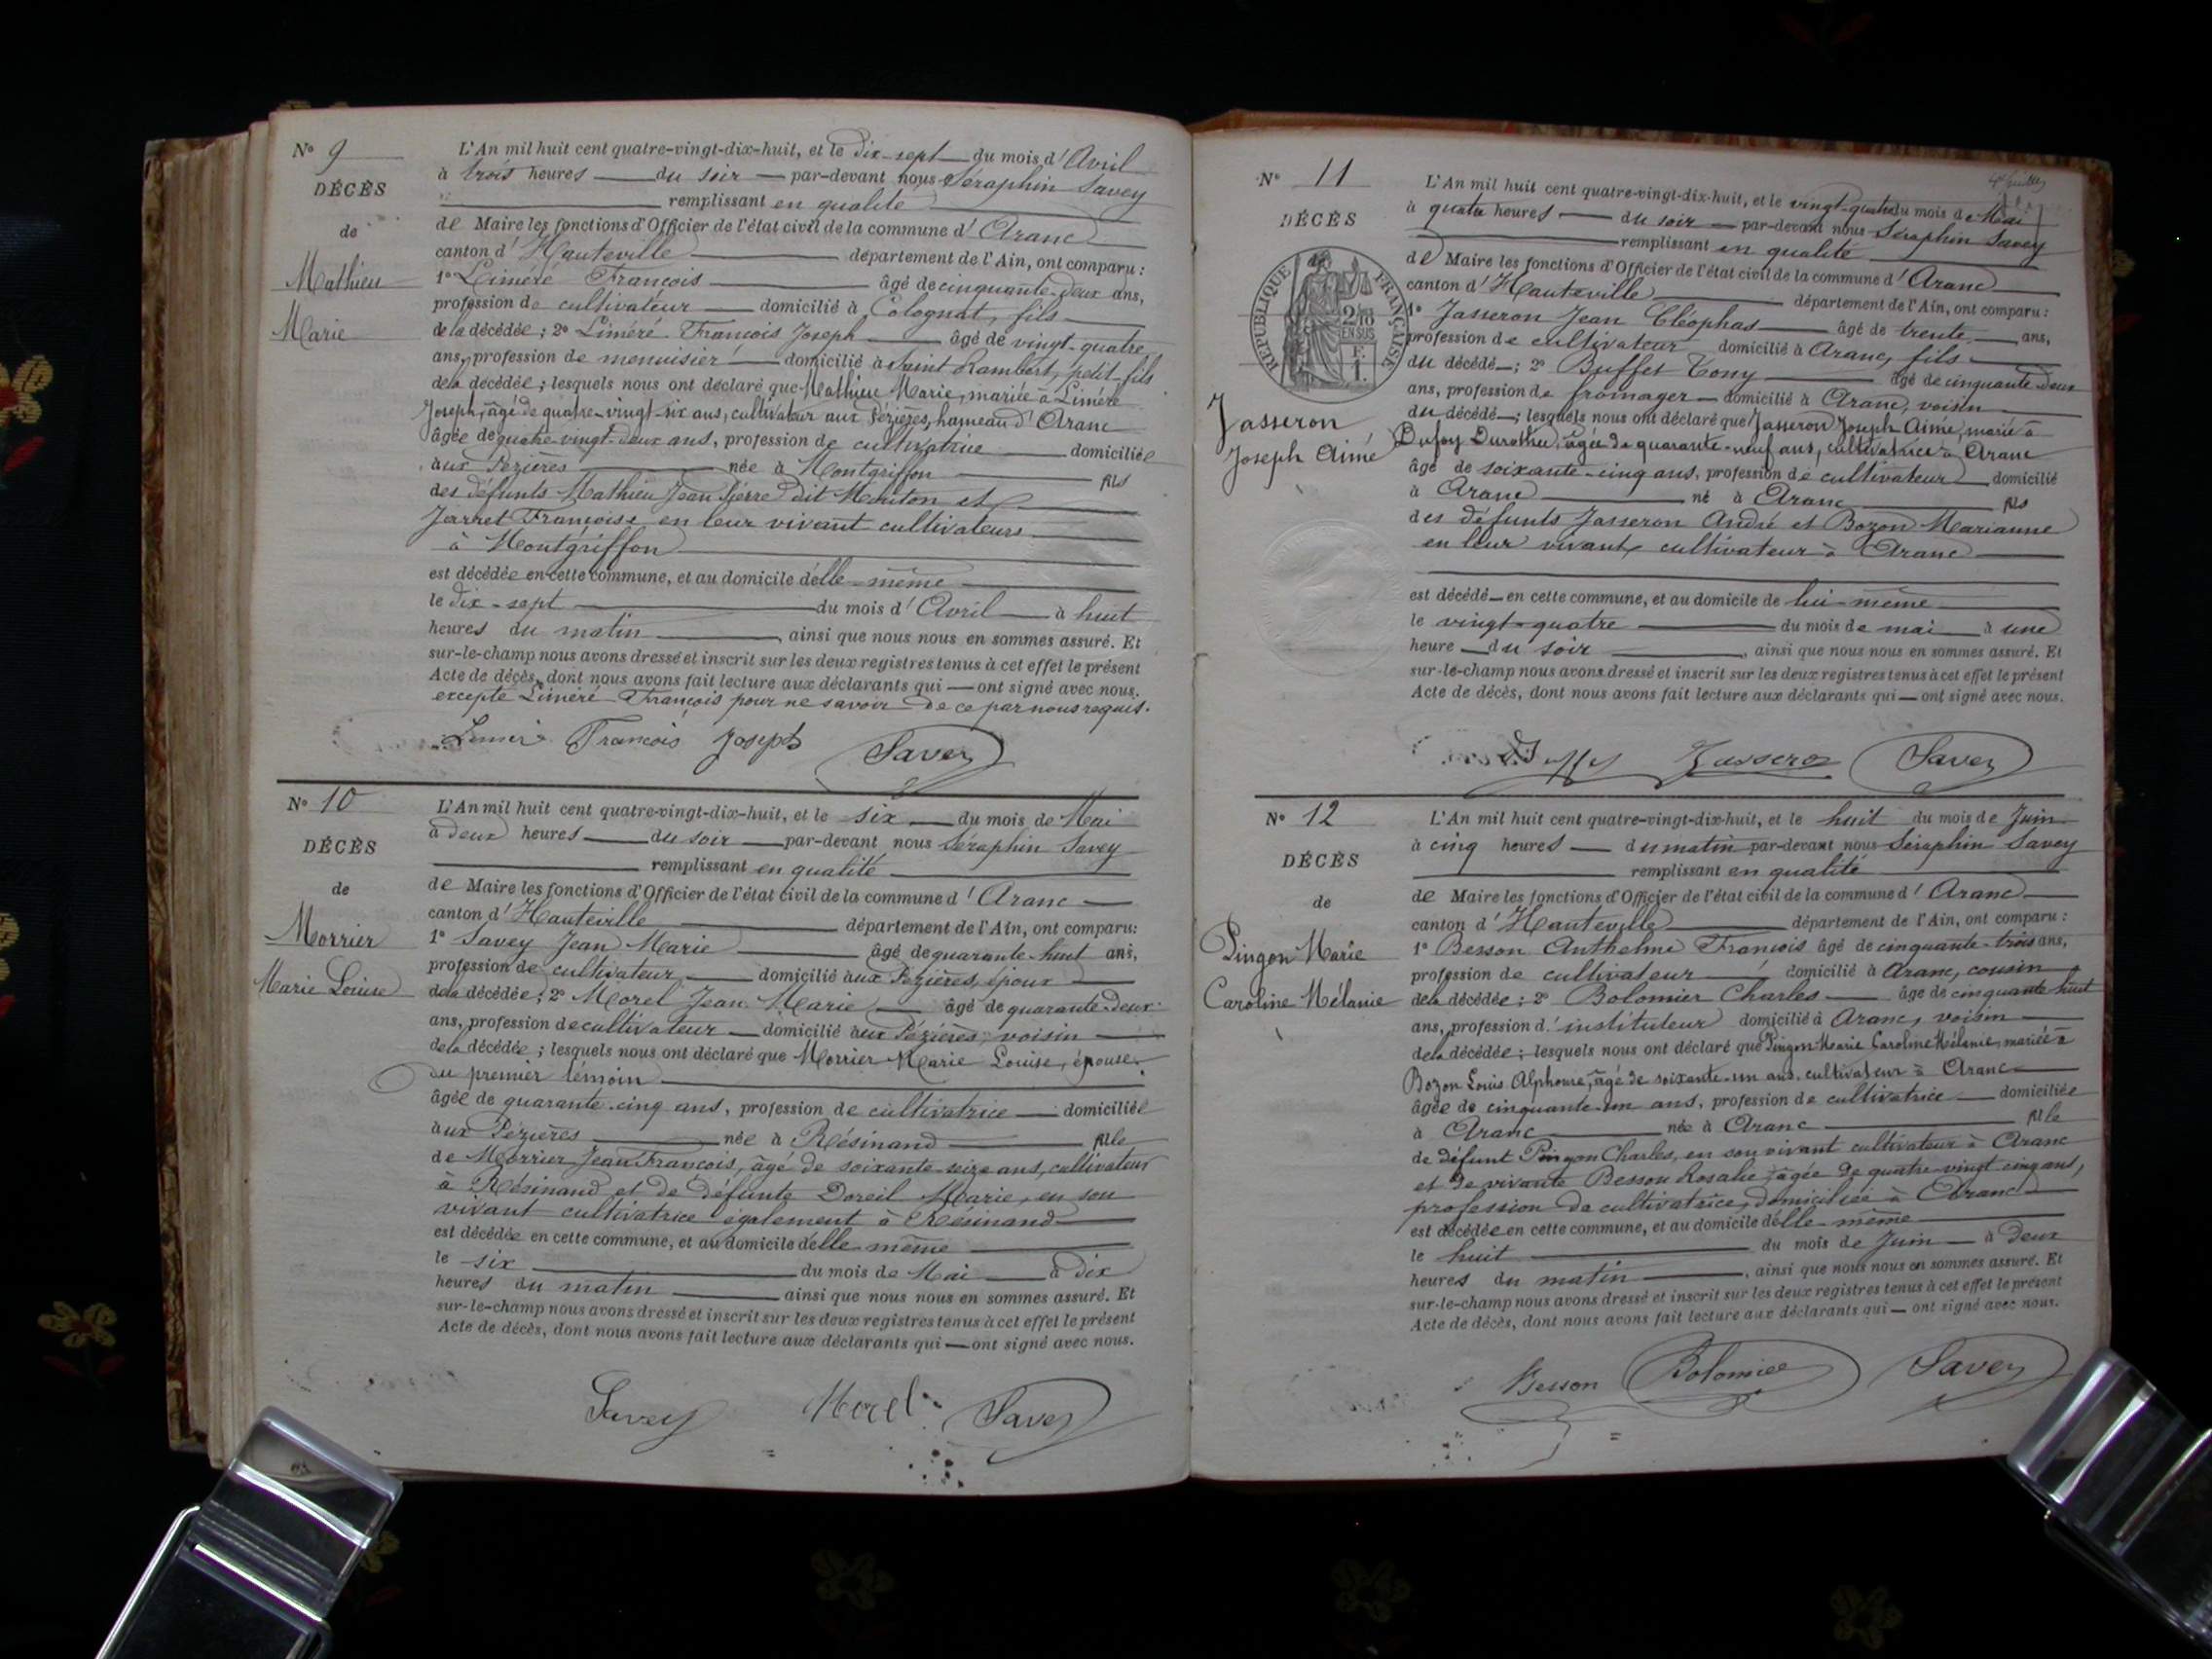 N° 9
DÉCÈS
de
Mathieu
Marie
L'An mil huit cent quatre-vingt-dix-huit, et le dix-sept du mois d'Avril
à trois heures du soir par-devant nous Séraphin Savey
remplissant en qualité
de Maire les fonctions d'Officier de l'état civil de la commune d'Aranc
canton d'Hauteville département de l'Ain, ont comparu :
1° Liméré François âgé de cinquante-deux ans,
profession de cultivateur domicilié à Colognat, fils
de la décédée ; 2° Liméré François Joseph âgé de vingt-quatre
ans, profession de menuisier domicilié à Saint Rambert, petit-fils
de la décédée ; lesquels nous ont déclaré que Mathieu Marie, mariée à Liméré
Joseph, âgé de quatre-vingt-six ans, cultivateur aux Pézières, hameau d'Aranc
âgée de quatre-vingt-deux ans, profession de cultivatrice domiciliée
aux Pézières née à Montgriffon fils
des défunts Mathieu Jean Pierre dit Mouton et
Jarret Françoise, en leur vivant cultivateurs
à Montgriffon
est décédée en cette commune, et au domicile d'elle-même
le dix-sept du mois d'Avril à huit
heures du matin, ainsi que nous nous en sommes assuré. Et
sur-le-champ nous avons dressé et inscrit sur les deux registres tenus à cet effet le présent
Acte de décès, dont nous avons fait lecture aux déclarants qui ont signé avec nous.
excepté Liméré François pour ne savoir de ce par nous requis.
Liméré François Joseph Savey
N° 10
DÉCÈS
de
Morrier
Marie Louise
L'An mil huit cent quatre-vingt-dix-huit, et le six du mois de Mai
à deux heures du soir par-devant nous Séraphin Savey
remplissant en qualité
de Maire les fonctions d'Officier de l'état civil de la commune d'Aranc
canton d'Hauteville département de l'Ain, ont comparu :
1° Savey Jean Marie âgé de quarante-huit ans,
profession de cultivateur domicilié aux Pézières, époux
de la décédée ; 2° Morel Jean Marie âgé de quarante-deux
ans, profession de cultivateur domicilié aux Pézières, voisin
de la décédée ; lesquels nous ont déclaré que Morrier Marie Louise, épouse
du premier témoin
âgée de quarante-cinq ans, profession de cultivatrice domiciliée
aux Pézières née à Résinand fille
de Morrier Jean François, âgé de soixante-seize ans, cultivateur
à Résinand et de défunte Doreil Marie, en son
vivant cultivatrice également à Résinand
est décédée en cette commune, et au domicile d'elle-même
le six du mois de Mai à dix
heures du matin ainsi que nous nous en sommes assuré. Et
sur-le-champ nous avons dressé et inscrit sur les deux registres tenus à cet effet le présent
Acte de décès, dont nous avons fait lecture aux déclarants qui ont signé avec nous.
Savey Morel Savey
N° 11
DÉCÈS
de
RÉPUBLIQUE FRANÇAISE
2/10
EN SUS
F.
1.
Jasseron
Joseph Aimé
L'An mil huit cent quatre-vingt-dix-huit, et le vingt-quatre du mois de Mai
à quatre heures du soir par-devant nous Séraphin Savey
remplissant en qualité
de Maire les fonctions d'Officier de l'état civil de la commune d'Aranc
canton d'Hauteville département de l'Ain, ont comparu :
1° Jasseron Jean Cléophas âgé de trente ans,
profession de cultivateur domicilié à Aranc, fils
du décédé ; 2° Buffet Tony âgé de cinquante-deux
ans, profession de fromager domicilié à Aranc, voisin
du décédé ; lesquels nous ont déclaré que Jasseron Joseph Aimé, marié à
Dufay Durothée, âgée de quarante-neuf ans, cultivatrice à Aranc
âgé de soixante-cinq ans, profession de cultivateur domicilié
à Aranc né à Aranc fils
des défunts Jasseron André et Bozon Marianne
en leur vivant, cultivateur à Aranc
est décédé en cette commune, et au domicile de lui-même
le vingt-quatre du mois de mai à une
heure du soir, ainsi que nous nous en sommes assuré. Et
sur-le-champ nous avons dressé et inscrit sur les deux registres tenus à cet effet le présent
Acte de décès, dont nous avons fait lecture aux déclarants qui ont signé avec nous.
Jasseron Savey
N° 12
DÉCÈS
de
Pingon Marie
Caroline Mélanie
L'An mil huit cent quatre-vingt-dix-huit, et le huit du mois de Juin
à cinq heures du matin par-devant nous Séraphin Savey
remplissant en qualité
de Maire les fonctions d'Officier de l'état civil de la commune d'Aranc
canton d'Hauteville département de l'Ain, ont comparu :
1° Besson Anthelme François âgé de cinquante-trois ans,
profession de cultivateur domicilié à Aranc, cousin
de la décédée ; 2° Bolomier Charles âgé de cinquante-huit
ans, profession d'instituteur domicilié à Aranc, voisin
de la décédée ; lesquels nous ont déclaré que Pingon Marie Caroline Mélanie, mariée à
Bozon Louis Alphonse, âgé de soixante-un ans, cultivateur à Aranc
âgée de cinquante-un ans, profession de cultivatrice domiciliée
à Aranc née à Aranc fille
de défunt Pingon Charles, en son vivant cultivateur à Aranc
et de vivante Besson Rosalie, âgée de quatre-vingt-cinq ans,
profession de cultivatrice, domiciliée à Aranc
est décédée en cette commune, et au domicile d'elle-même
le huit du mois de Juin à deux
heures du matin, ainsi que nous nous en sommes assuré. Et
sur-le-champ nous avons dressé et inscrit sur les deux registres tenus à cet effet le présent
Acte de décès, dont nous avons fait lecture aux déclarants qui ont signé avec nous.
Besson Bolomier Savey